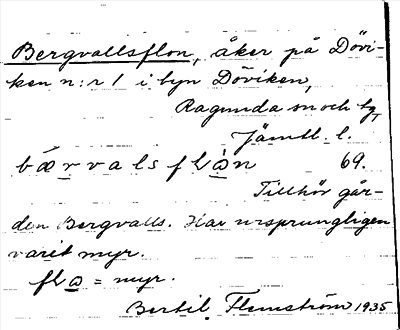 Bergvallsflon, åker på Dövi-
ken n:r 1 i byn Döviken,
Ragunda sn och tg
Jämtl. l.
bærvalsflån 69.
Tillhör går-
den Bergvalls. Har ursprungligen
varit myr.
fla = myr.
Bertil Flemström 1935